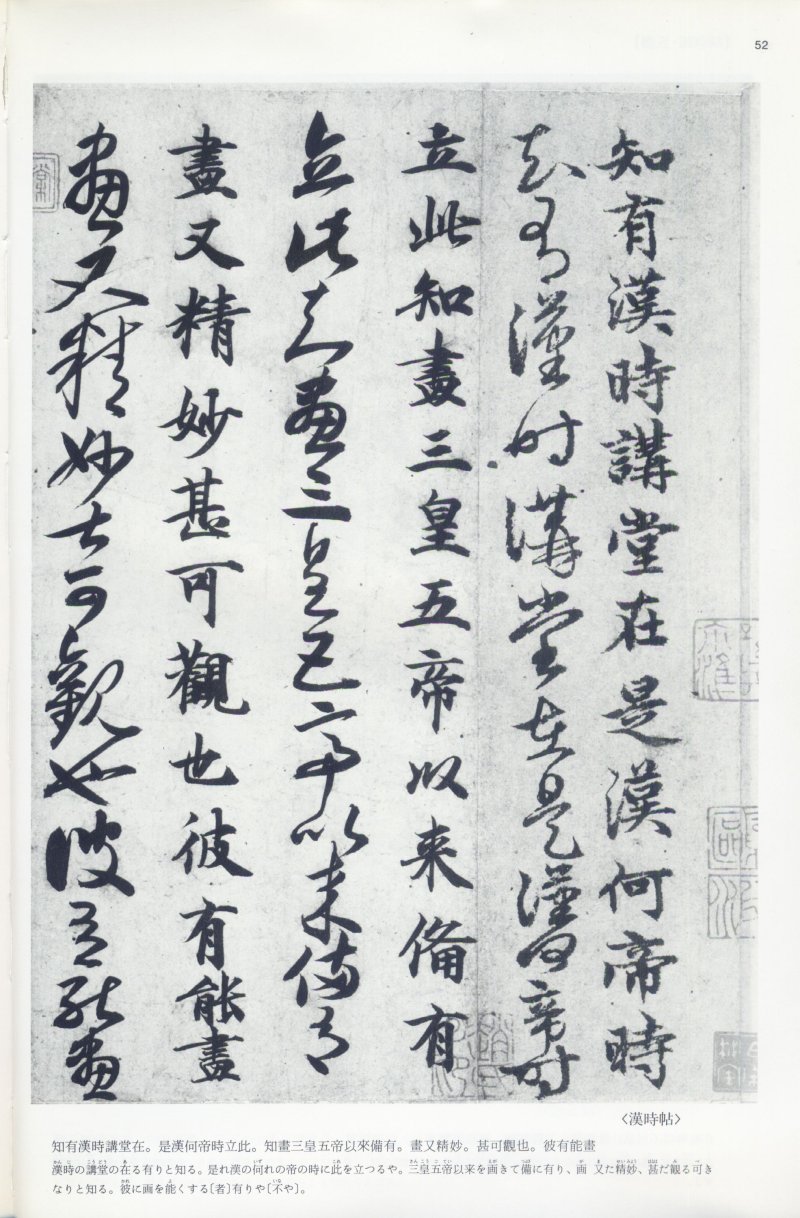 52
知有漢時講堂在是漢何帝時
知有漢時講堂在是漢何帝時
立此知畫三皇五帝以来備有
立此知畫三皇五帝以来備有
畫又精妙甚可觀也彼有能畫
畫又精妙甚可觀也彼有能畫
〈漢時帖〉
知有漢時講堂在。是漢何帝時立此。知畫三皇五帝以來備有。畫又精妙。甚可觀也。彼有能畫
漢時の講堂の在る有りと知る。是れ漢の何れの帝の時に此を立つるや。三皇五帝以来を画きて備に有り、画 又た精妙、甚だ観る可き
なりと知る。彼に画を能くする〔者〕有りや〔不や〕。